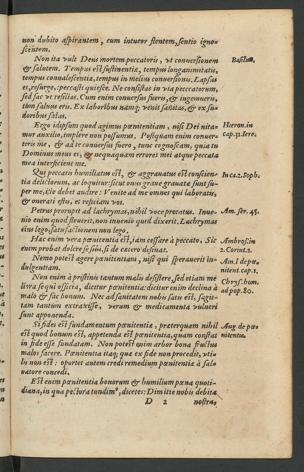 non dubito aspirantem, cum intueor flentem, sentio igno-
scentem.
Non ita vult Deus mortem peccatoris, ut conversionem
& salutem. Tempus est sustinentiæ, tempus longanimitatis,
tempus convalescentiæ, tempus in melius conversionis. Lapsus
es, resurge. peccasti quiesce. Ne consistas in via peccatorum,
sed fac ut resilias. Cum enim conversus fueris, & ingemueris,
tum salvus eris. Ex laboribus namq; venit sanitas, & ex su-
doribus salus.
Ergo id ipsum quod agimus pœnitentiam, nisi Dei nita-
mur auxilio, implere non possumus. Postquam enim conver-
teris me, & ad te conversus fuero, tunc cognoscam, quia tu
Dominus meus es, & nequaquam errores mei atque peccata
mea interficient me.
Qui peccatis humiliatus est, & aggravatus est conscien-
tia delictorum, ac loquitur: sicut onus grave gravatæ sunt su-
per me, iste debet audire: Venite ad me omnes qui laboratis,
& onerati estis, et reficiam vos.
Petrus prorupit ad lachrymas, nihil voce precatus. Inve-
nio enim quod fleverit, non invenio quid dixerit. Lachrymas
eius lego, satisfactionem non lego.
Hæc enim vera pœnitentia est, iam cessare à peccato. Sic
enim probat dolere se sibi, si de cætero desinat.
Nemo potest agere pœnitentiam, nisi qui speraverit in-
dulgentiam.
Non enim à pristinis tantum malis desistere, sed etiam me
liora sequi officia, dicitur pœnitentia: dicitur enim declina à
malo & fac bonum. Nec ad sanitatem nobis satis est, sagit-
tam tantum extraxisse, verum & medicamenta vulneri
sunt apponenda.
Si fides est fundamentum pœnitentiæ, præterquam nihil
est quod bonum est, appetenda est pœnitentia, quam constat
in fide esse fundatam. Non potest enim arbor bona fructus
malos facere. Pœnitentia itaq; quæ ex fide non procedit, uti-
lis non est: oportet autem credi remedium pœnitentiæ à sal-
vatore concedi.
Est enim pœnitentia bonorum & humilium pœna quoti-
diana, in qua pectora tundimus, dicentes: Dimitte nobis debita
D 2 nostra,
Basilius.
Hieron. in
cap. 31. Iere.
In ca. 2. Soph.
Am. ser. 45.
Ambros. in
2. Corint. 2.
Am. 1. de pœ-
nitent. cap. 1.
Chrys. hom.
ad pop. 80.
Aug. de pœ-
nitentia.